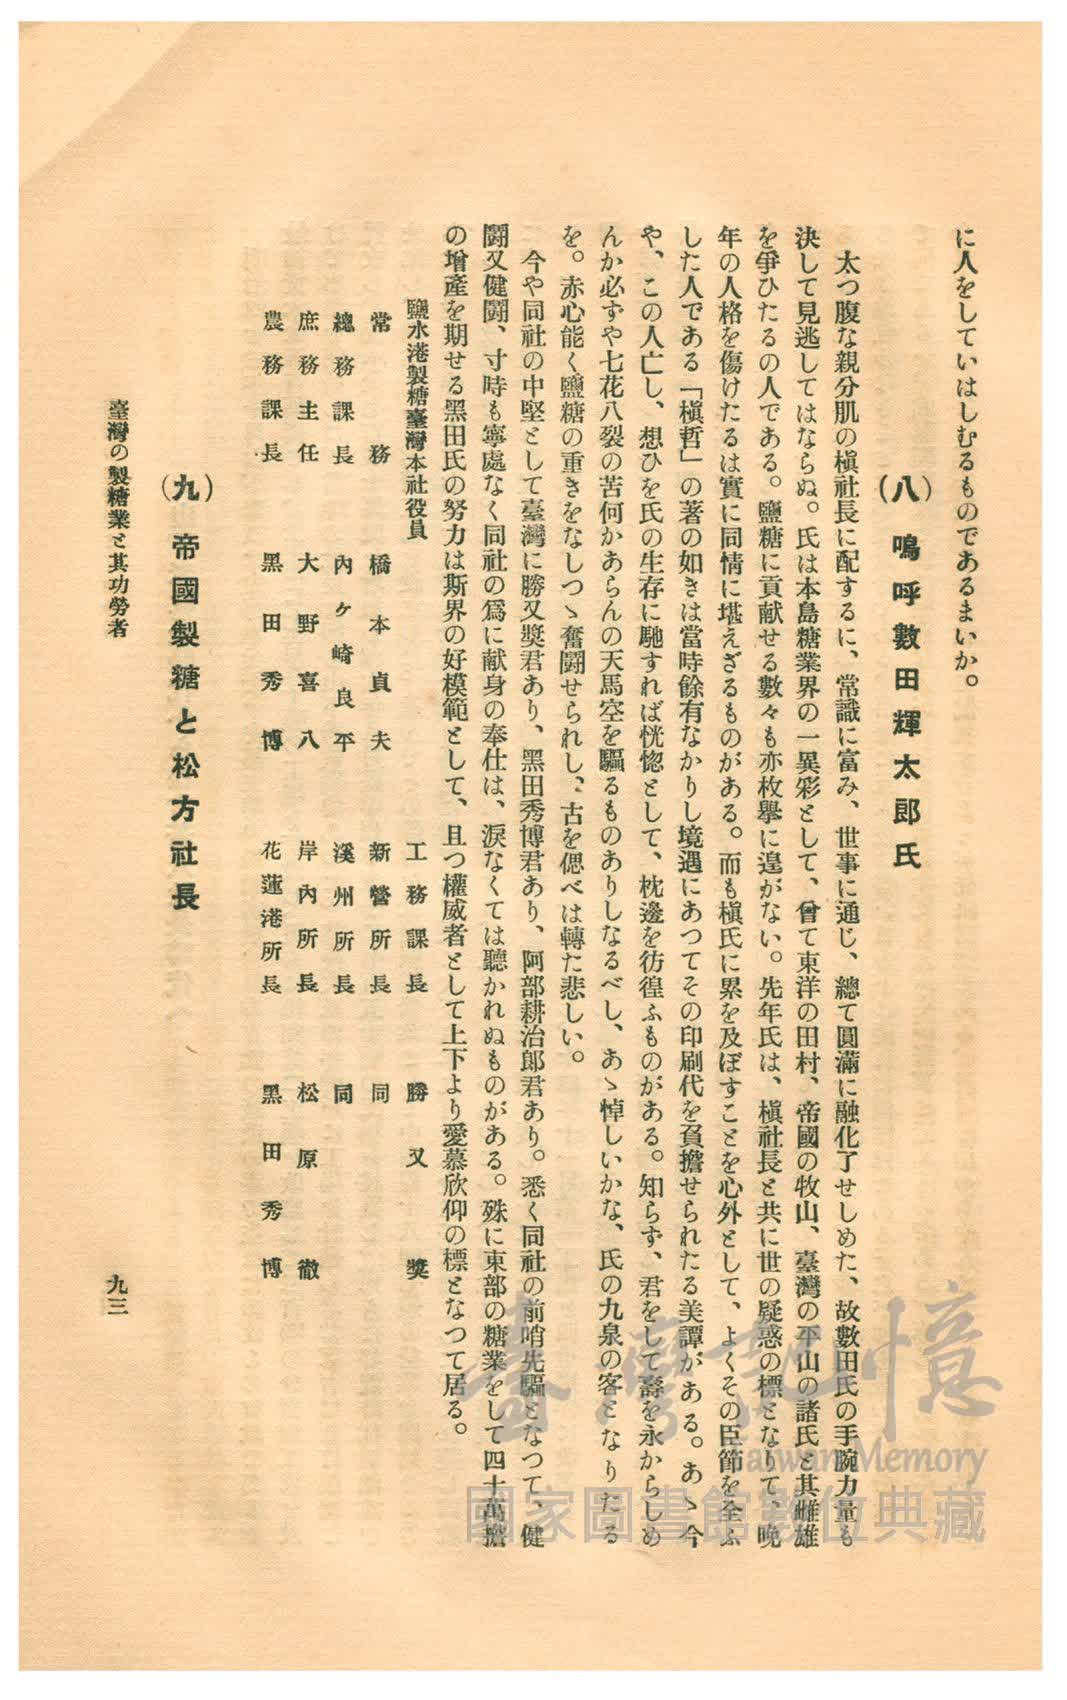 に人をしていはしむるものであるまいか。
(八) 嗚呼數田輝太郎氏
太つ腹な親分肌の槇社長に配するに、常識に富み、世事に通じ、總て圓滿に融化了せしめた、故數田氏の手腕力量も
決して見逃してはならぬ。氏は本島糖業界の一異彩として、曾て東洋の田村、帝國の牧山、臺灣の平山の諸氏と其雌雄
を爭ひたるの人である。鹽糖に貢献せる數々も亦枚擧に遑がない。先年氏は、槇社長と共に世の疑惑の標となりて、晩
年の人格を傷けたるは實に同情に堪えざるものがある。而も槇氏に累を及ぼすことを心外として、よくその臣節を全ふ
した人である「槇哲」の著の如きは當時餘有なかりし境遇にあつてその印刷代を負擔せられたる美譚がある。あゝ今
や、この人亡し、想ひを氏の生存に馳すれば恍惚として、枕邊を彷徨ふものがある。知らず、君をして壽を永からしめ
んか必ずや七花八裂の苦何かあらんの天馬空を驅るものありしなるべし、あゝ悼しいかな、氏の九泉の客となりたる
を。赤心能く鹽糖の重きをなしつゝ奮鬪せられし、古を偲べは轉た悲しい。
今や同社の中堅として臺灣に勝又奬君あり、黑田秀博君あり、阿部耕治郎君あり。悉く同社の前哨先驅となつて、健
鬪又健鬪、寸時も寧處なく同社の爲に献身の奉仕は、淚なくては聽かれぬものがある。殊に東部の糖業をして四十萬擔
の增產を期せる黑田氏の努力は斯界の好模範として、且つ權威者として上下より愛慕欣仰の標となつて居る。
鹽水港製糖臺灣本社役員
工務課長 勝又奬
常務 橋本貞夫 新營所長 同
總務課長 內ヶ崎良平 溪州所長 同
庶務主任 大野喜八 岸內所長 松原徹
農務課長 黑田秀博 花蓮港所長 黑田秀博
(九) 帝國製糖と松方社長
臺灣の製糖業と其功勞者 九三
臺灣記憶
Taiwan Memory
國家圖書館數位典藏